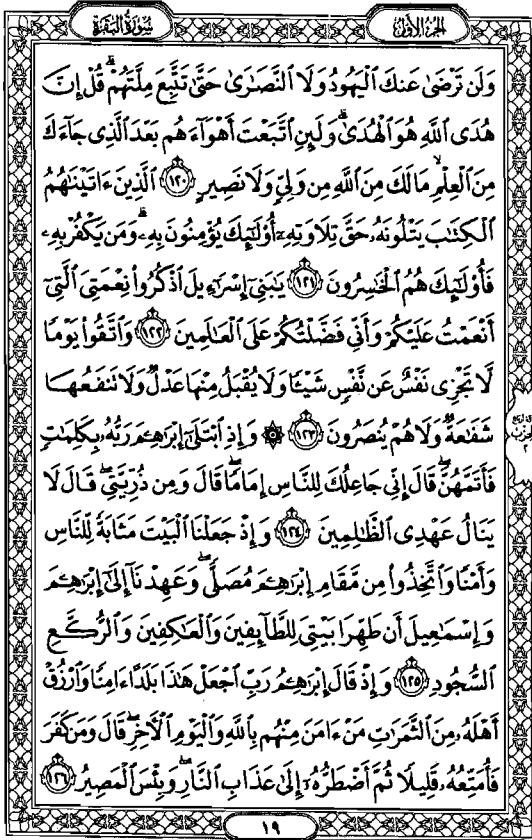 سُورَةُ البَقَرَةِ
الجُزءُ الأوَّلُ
وَلَن تَرْضَىٰ عَنكَ ٱلْيَهُودُ وَلَا ٱلنَّصَٰرَىٰ حَتَّىٰ تَتَّبِعَ مِلَّتَهُمْ ۗ قُلْ إِنَّ
هُدَى ٱللَّهِ هُوَ ٱلْهُدَىٰ ۗ وَلَئِنِ ٱتَّبَعْتَ أَهْوَآءَهُم بَعْدَ ٱلَّذِى جَآءَكَ
مِنَ ٱلْعِلْمِ ۙ مَا لَكَ مِنَ ٱللَّهِ مِن وَلِىٍّ وَلَا نَصِيرٍ ١٢٠ ٱلَّذِينَ ءَاتَيْنَٰهُمُ
ٱلْكِتَٰبَ يَتْلُونَهُۥ حَقَّ تِلَاوَتِهِۦٓ أُو۟لَٰٓئِكَ يُؤْمِنُونَ بِهِۦ ۗ وَمَن يَكْفُرْ بِهِۦ
فَأُو۟لَٰٓئِكَ هُمُ ٱلْخَٰسِرُونَ ١٢١ يَٰبَنِىٓ إِسْرَٰٓءِيلَ ٱذْكُرُوا۟ نِعْمَتِىَ ٱلَّتِىٓ
أَنْعَمْتُ عَلَيْكُمْ وَأَنِّى فَضَّلْتُكُمْ عَلَى ٱلْعَٰلَمِينَ ١٢٢ وَٱتَّقُوا۟ يَوْمًا
لَّا تَجْزِى نَفْسٌ عَن نَّفْسٍ شَيْـًٔا وَلَا يُقْبَلُ مِنْهَا عَدْلٌ وَلَا تَنفَعُهَا
شَفَٰعَةٌ وَلَا هُمْ يُنصَرُونَ ١٢٣ ۞ وَإِذِ ٱبْتَلَىٰٓ إِبْرَٰهِـۧمَ رَبُّهُۥ بِكَلِمَٰتٍ
فَأَتَمَّهُنَّ ۖ قَالَ إِنِّى جَاعِلُكَ لِلنَّاسِ إِمَامًا ۖ قَالَ وَمِن ذُرِّيَّتِى ۖ قَالَ لَا
يَنَالُ عَهْدِى ٱلظَّٰلِمِينَ ١٢٤ وَإِذْ جَعَلْنَا ٱلْبَيْتَ مَثَابَةً لِّلنَّاسِ
وَأَمْنًا وَٱتَّخِذُوا۟ مِن مَّقَامِ إِبْرَٰهِـۧمَ مُصَلًّى ۖ وَعَهِدْنَآ إِلَىٰٓ إِبْرَٰهِـۧمَ
وَإِسْمَٰعِيلَ أَن طَهِّرَا بَيْتِىَ لِلطَّآئِفِينَ وَٱلْعَٰكِفِينَ وَٱلرُّكَّعِ
ٱلسُّجُودِ ١٢٥ وَإِذْ قَالَ إِبْرَٰهِـۧمُ رَبِّ ٱجْعَلْ هَٰذَا بَلَدًا ءَامِنًا وَٱرْزُقْ
أَهْلَهُۥ مِنَ ٱلثَّمَرَٰتِ مَنْ ءَامَنَ مِنْهُم بِٱللَّهِ وَٱلْيَوْمِ ٱلْـَٔاخِرِ ۖ قَالَ وَمَن كَفَرَ
فَأُمَتِّعُهُۥ قَلِيلًا ثُمَّ أَضْطَرُّهُۥٓ إِلَىٰ عَذَابِ ٱلنَّارِ ۖ وَبِئْسَ ٱلْمَصِيرُ ١٢٦
١٩